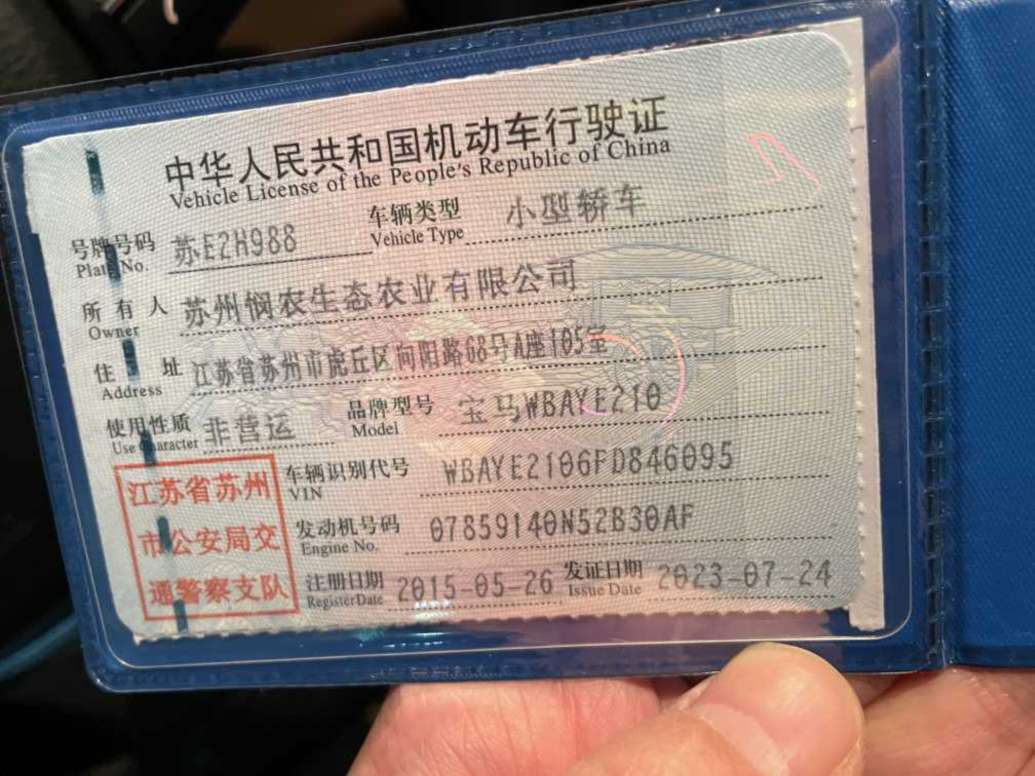 中华人民共和国机动车行驶证
Vehicle License of the People's Republic of China
号牌号码 苏E2H988 车辆类型 小型轿车
Plate No. Vehicle Type
所有人 苏州悯农生态农业有限公司
Owner
住址 江苏省苏州市虎丘区向阳路68号A座105室
Address
使用性质 非营运 品牌型号 宝马WBAYE210
Use Character Model
车辆识别代号 WBAYE2106FD846095
VIN
发动机号码 07859140N52B30AF
Engine No.
注册日期 2015-05-26 发证日期 2023-07-24
Register Date Issue Date
江苏省苏州
市公安局交
通警察支队